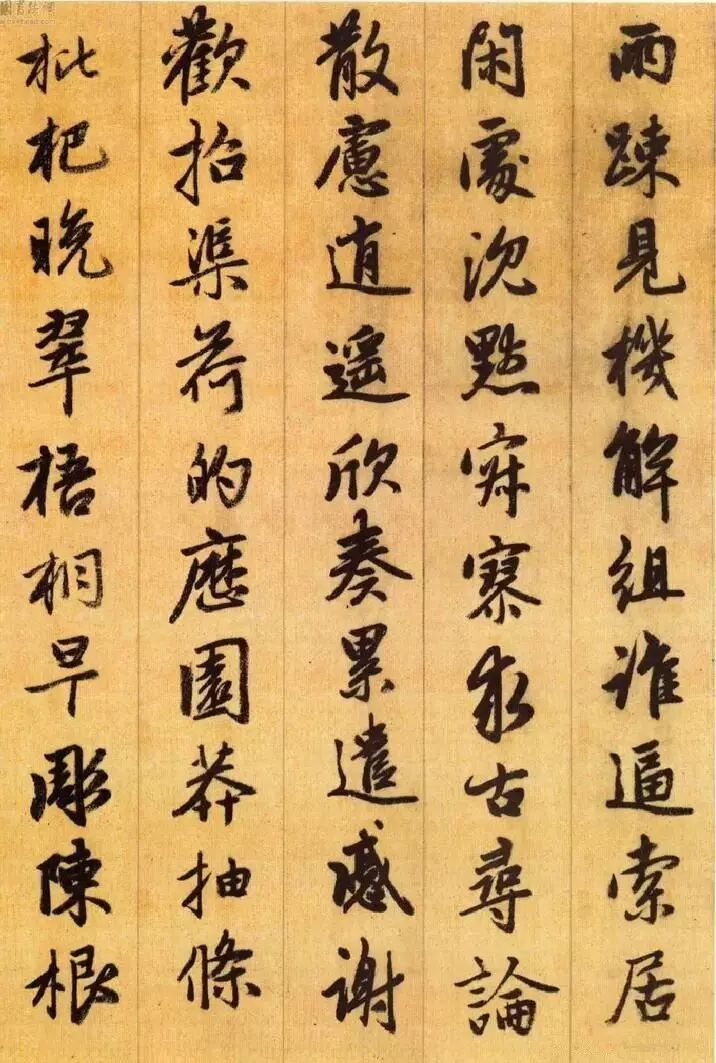 兩踈見機解組誰逼索居
閑處沉默寂寥求古尋論
散慮逍遥欣奏累遣慼謝
歡招渠荷的歷園莽抽條
枇杷晚翠梧桐早彫陳根